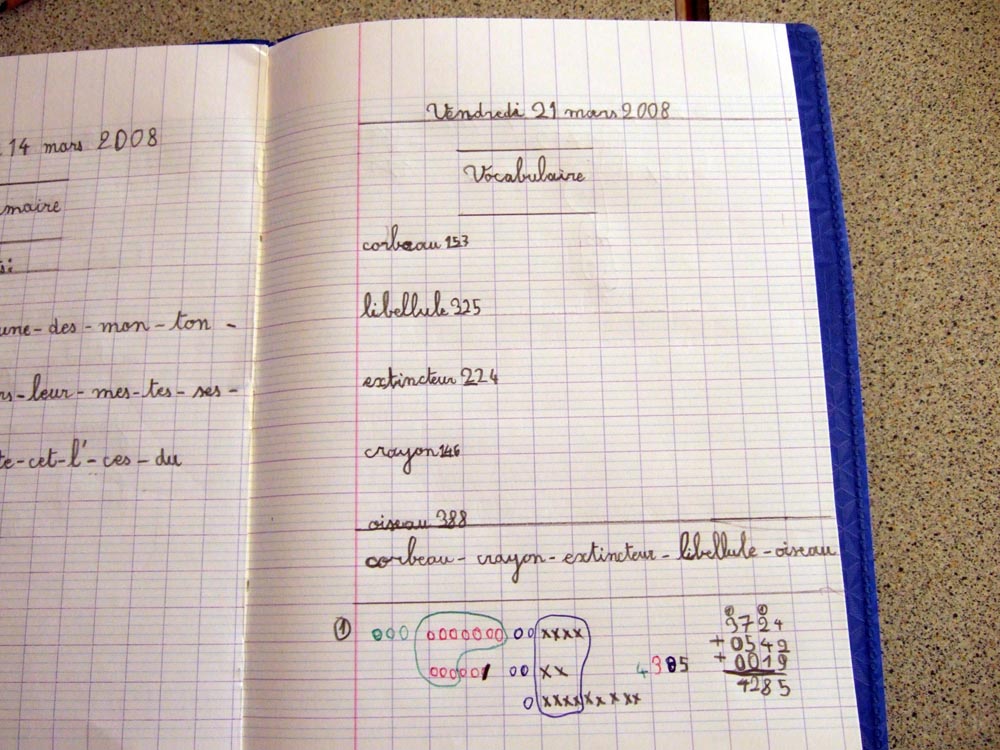 14 mars 2008
maire
s:
une - des - mon - ton -
rs - leur - mes - tes - ses -
te - cet - l' - ces - du
Vendredi 21 mars 2008
Vocabulaire
corbeau 153
libellule 325
extincteur 224
crayon 146
oiseau 388
corbeau - crayon - extincteur - libellule - oiseau
1 ooo ooooooo oo xxxx
oooooo oo xx
o xxxxxxxxx
4385
3724
+ 0542
+ 0019
4285